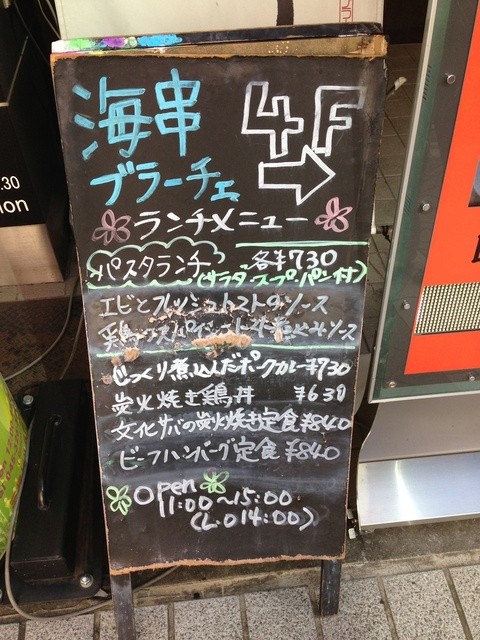 海串 4F
ブラーチェ
ランチメニュー
パスタランチ 各¥730
(サラダ・スープ・パン付)
エビとフレッシュトマトのソース
鶏 ソース
じっくり煮込んだポークカレー ¥730
炭火焼き鶏丼 ¥630
文化サバの炭火焼き定食 ¥840
ビーフハンバーグ定食 ¥840
Open
11:00~15:00
(L.O 14:00)
.30
ion